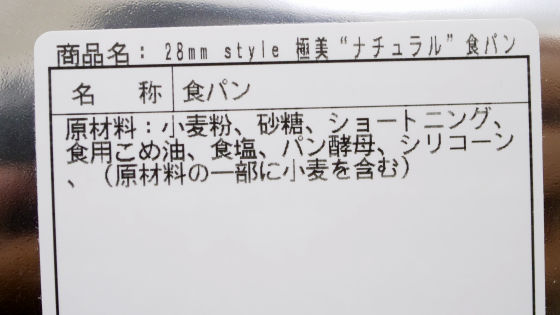 商品名: 28mm style 極美“ナチュラル”食パン
名 称 食パン
原材料:小麦粉、砂糖、ショートニング、
食用こめ油、食塩、パン酵母、シリコーン
、(原材料の一部に小麦を含む)